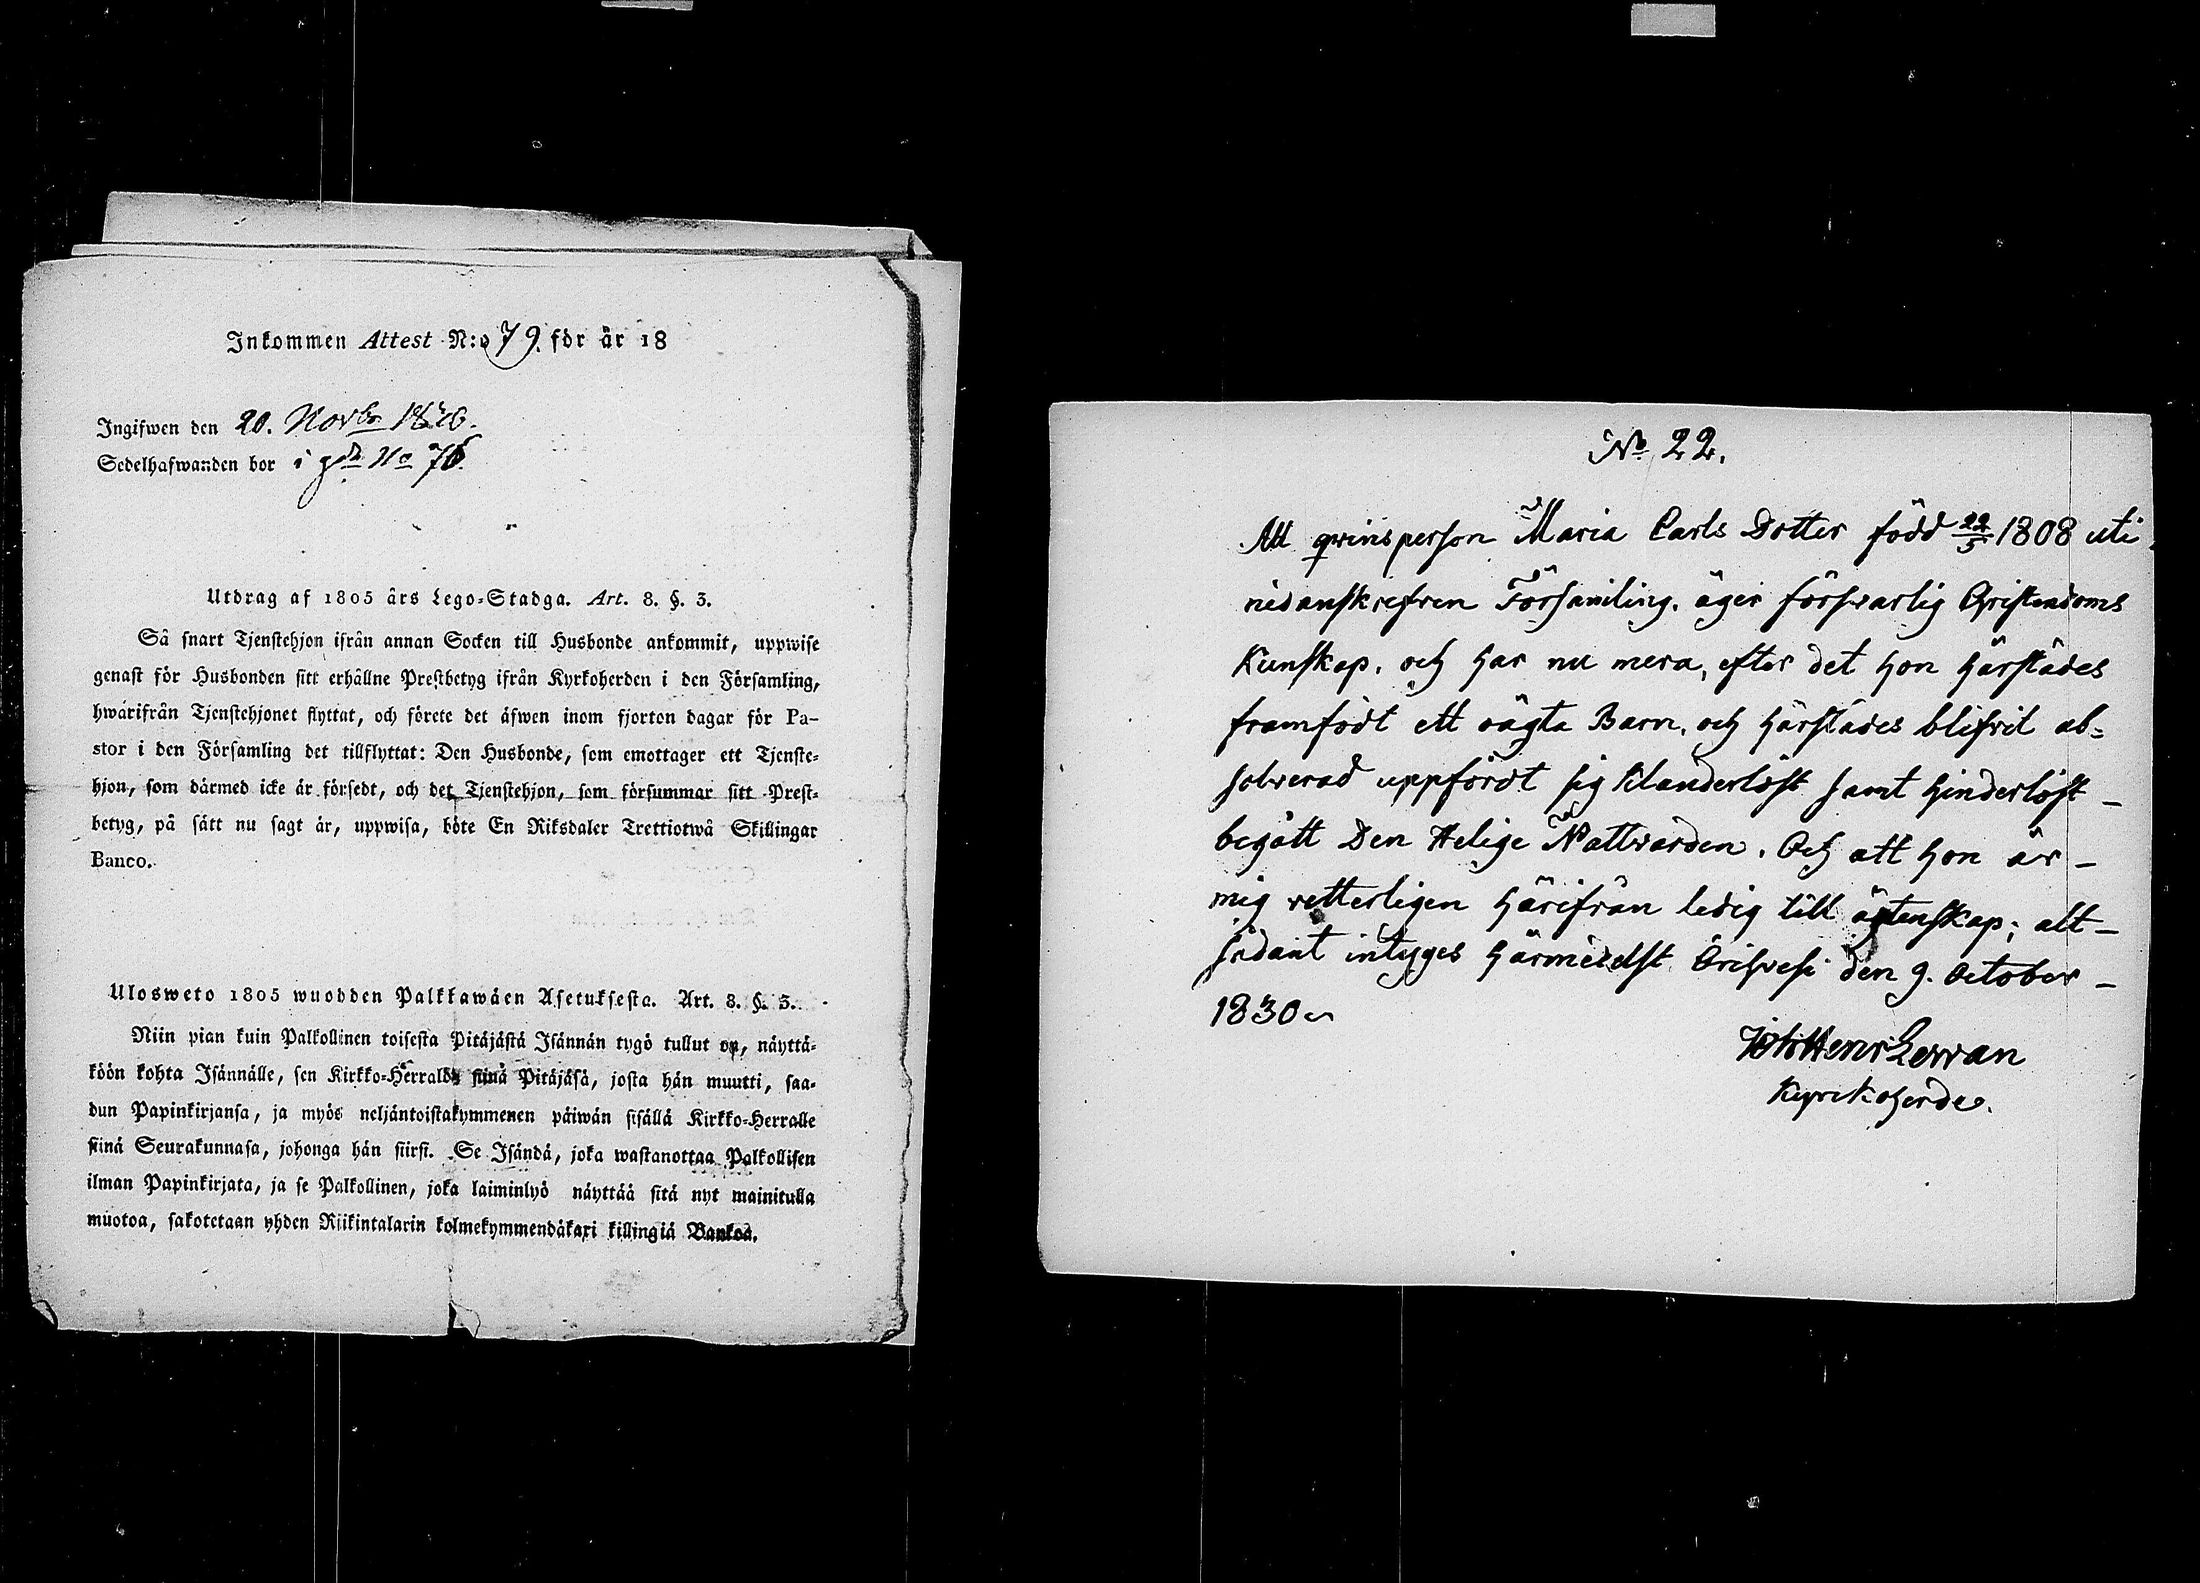 Inkommen Attest N:o 79. för år 18
Ingifwen den 20. Novbr
Sedelhafwanden bor i gd No 76.
Utdrag af 1805 års Lego-Stadga. Art. 8. §. 3.
Så snart Tjenstehjon ifrån annan Socken till Husbonde ankommit, uppwise
genast för Husbonden sitt erhållne Prestbetyg ifrån Kyrkoherden i den Församling,
hwarifrån Tjenstehjonet flyttat, och förete det äfwen inom fjorton dagar för Pa-
stor i den Församling det tillflyttat: Den Husbonde, som emottager ett Tjenste-
hjon, som därmed icke är försedt, och det Tjenstehjon, som försummar sitt Prest-
betyg, på sätt nu sagt är, uppwisa, böte En Riksdaler Trettiotwå Skillingar
Banco.
Ulosweto 1805 wuodden Palkkawäen Asetuksesta. Art. 8. §. 3.
Niin pian kuin Palkollinen toisesta Pitäjästä Isännän tygö tullut on, näyttä-
köön kohta Isännälle, sen Kirkko-Herralda siinä Pitäjäsä, josta hän muutti, saa-
dun Papinkirjansa, ja myös neljäntoistakymmenen päiwän sisällä Kirkko-Herralle
siinä Seurakunnasa, johonga hän siirsi. Se Isändä, joka wastanottaa Palkollisen
ilman Papinkirjata, ja se Palkollinen, joka laiminlyö näyttää sitä nyt mainitulla
muotoa, sakotetaan yhden Riikintalarin kolmekymmendäkaxi killingiä Bankoa.
No 22.
Att qvinsperson Maria Carls Dotter född 22/5 1808 uti
nedanskrefven Församling, äger försvarlig Christendoms
Kunskap, och har nu mera, efter det hon härstädes
framfödt ett oägta Barn, och härstädes blifvit ab-
solverad uppfördt sig klanderlöst samt hinderlöst
begått Den Helige Nattvarden. Och att hon är
mig vetterligen härifrån ledig till ägtenskap; alt-
sådant intyges härmedelst Orisvesi den 9. October
1830.
Joh Henr Lewan
Kyrkoherde.